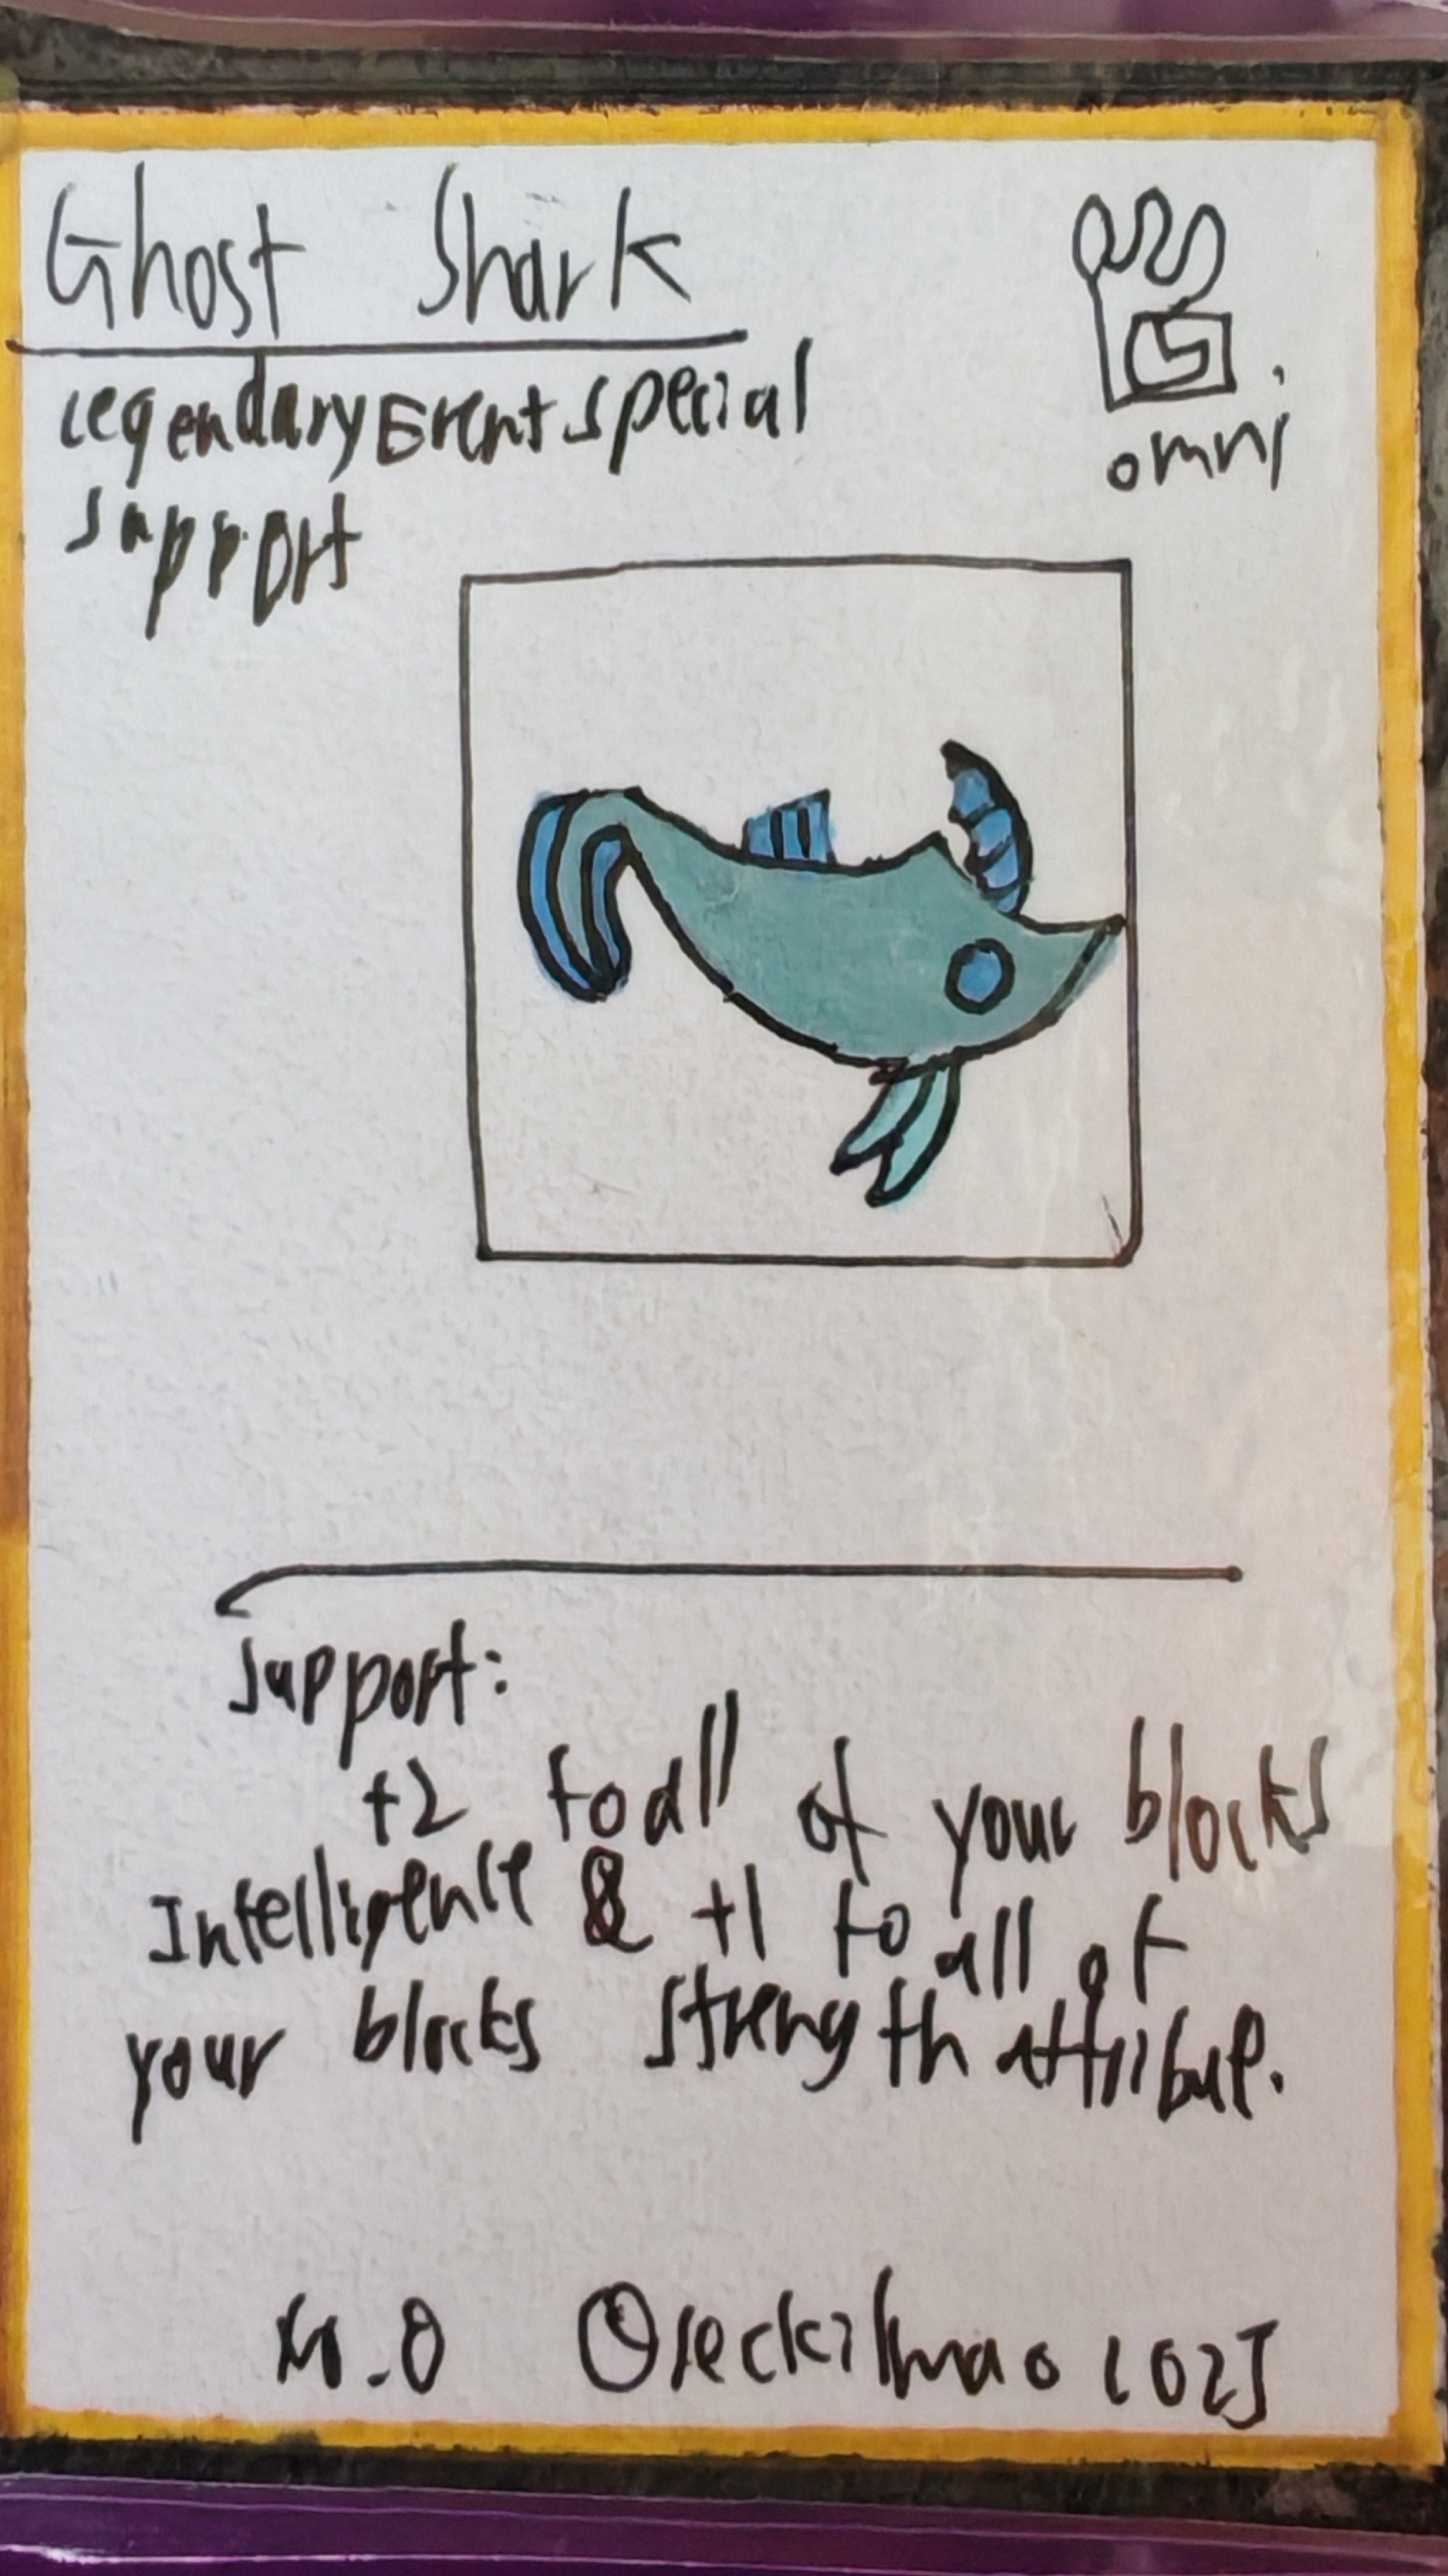 Ghost Shark
Legendary Event Special
Support
omni
Support:
+2 to all of your blocks
Intelligence & +1 to all of
your blocks strength attribute.